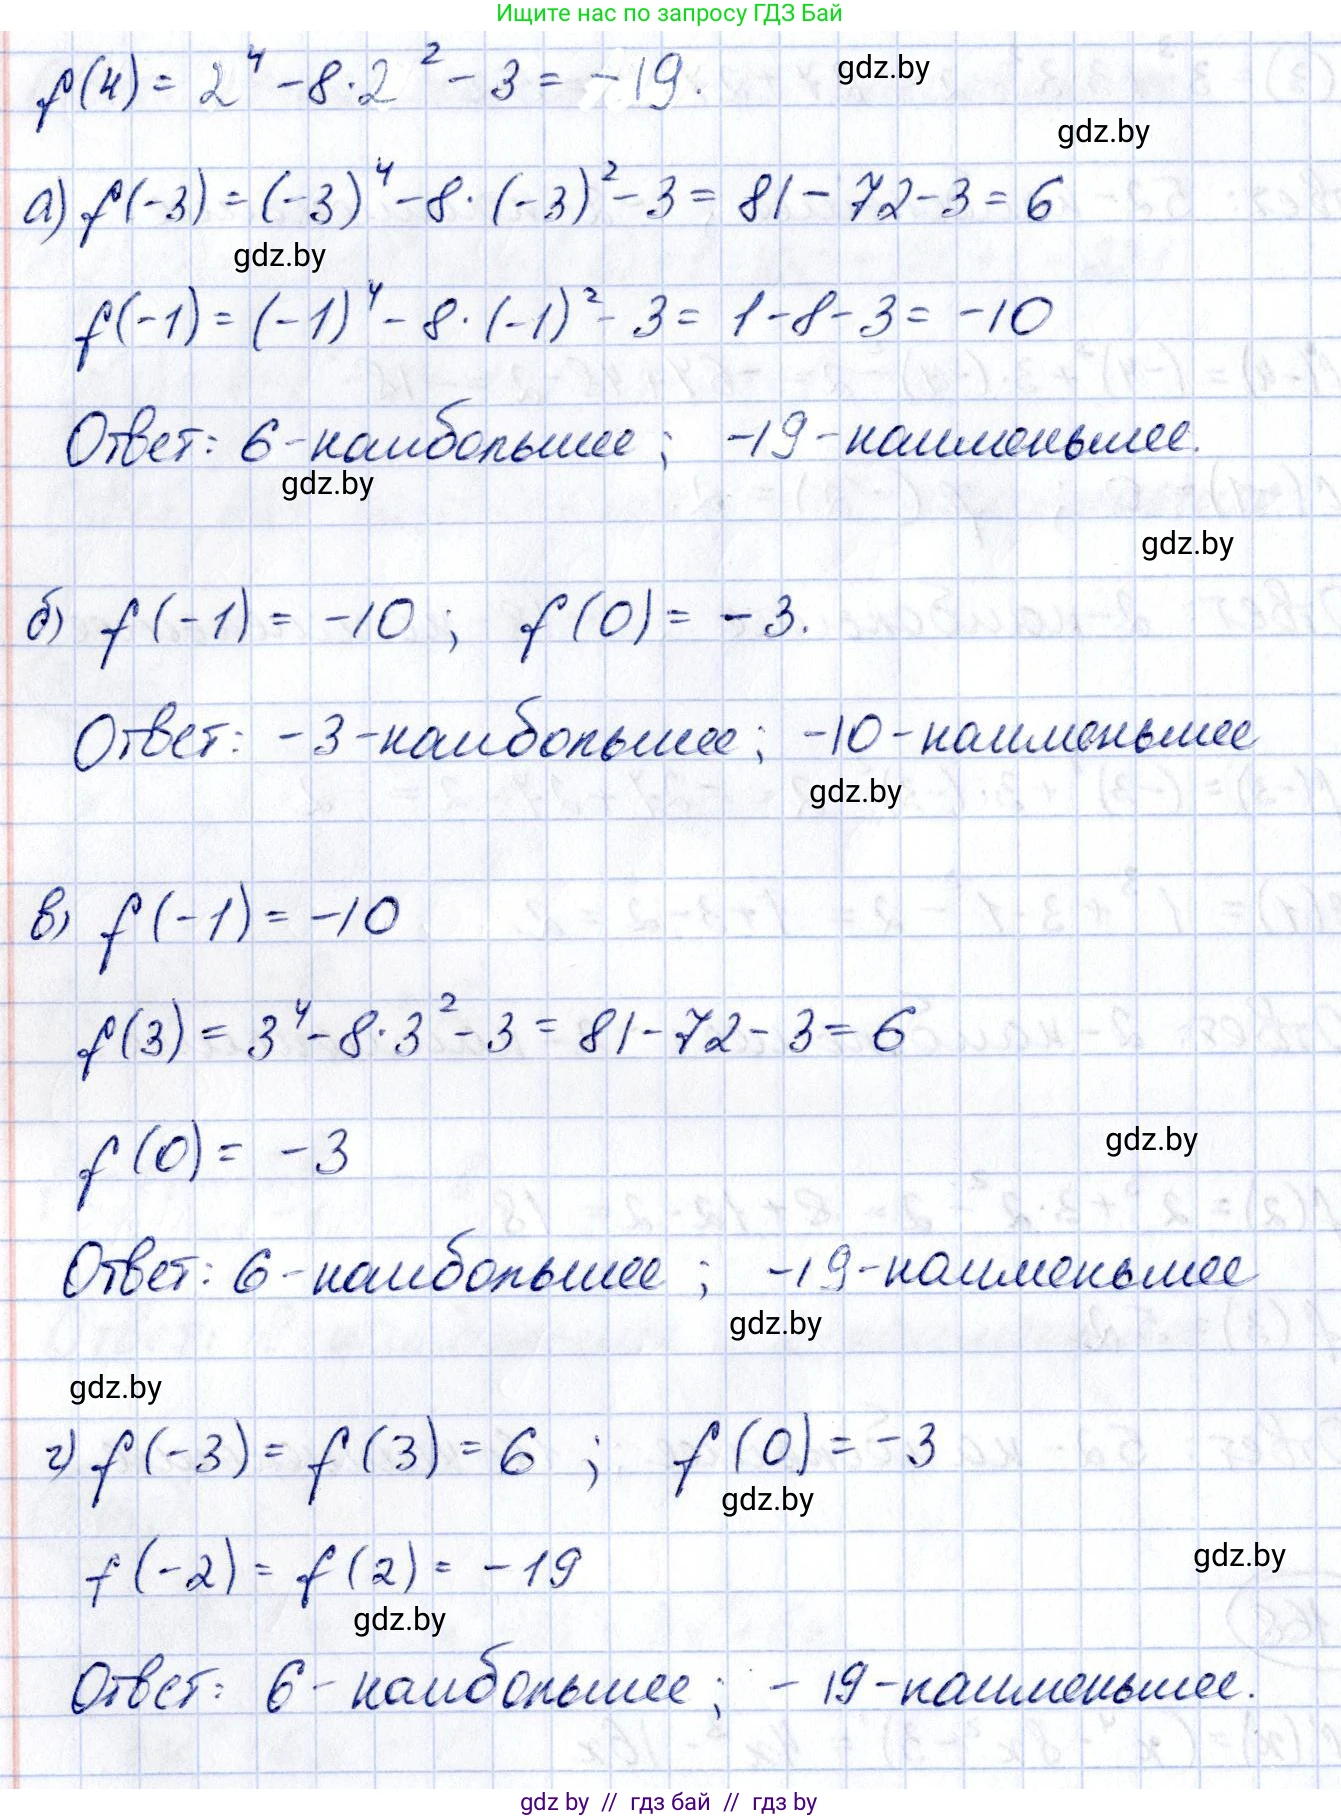 Ищите нас по запросу ГДЗ Бай
f(4) = 2⁴ - 8·2² - 3 = -19.
gdz.by
gdz.by
а) f(-3) = (-3)⁴ - 8·(-3)² - 3 = 81 - 72 - 3 = 6
gdz.by
f(-1) = (-1)⁴ - 8·(-1)² - 3 = 1 - 8 - 3 = -10
Ответ: 6 - наибольшее; -19 - наименьшее.
gdz.by
gdz.by
б) f(-1) = -10; f(0) = -3.
Ответ: -3 - наибольшее; -10 - наименьшее
gdz.by
в) f(-1) = -10
f(3) = 3⁴ - 8·3² - 3 = 81 - 72 - 3 = 6
f(0) = -3
gdz.by
Ответ: 6 - наибольшее; -19 - наименьшее
gdz.by
gdz.by
г) f(-3) = f(3) = 6 ; f(0) = -3
gdz.by
f(-2) = f(2) = -19
gdz.by
gdz.by
Ответ: 6 - наибольшее; -19 - наименьшее.
gdz by // гдз бай // гдз by